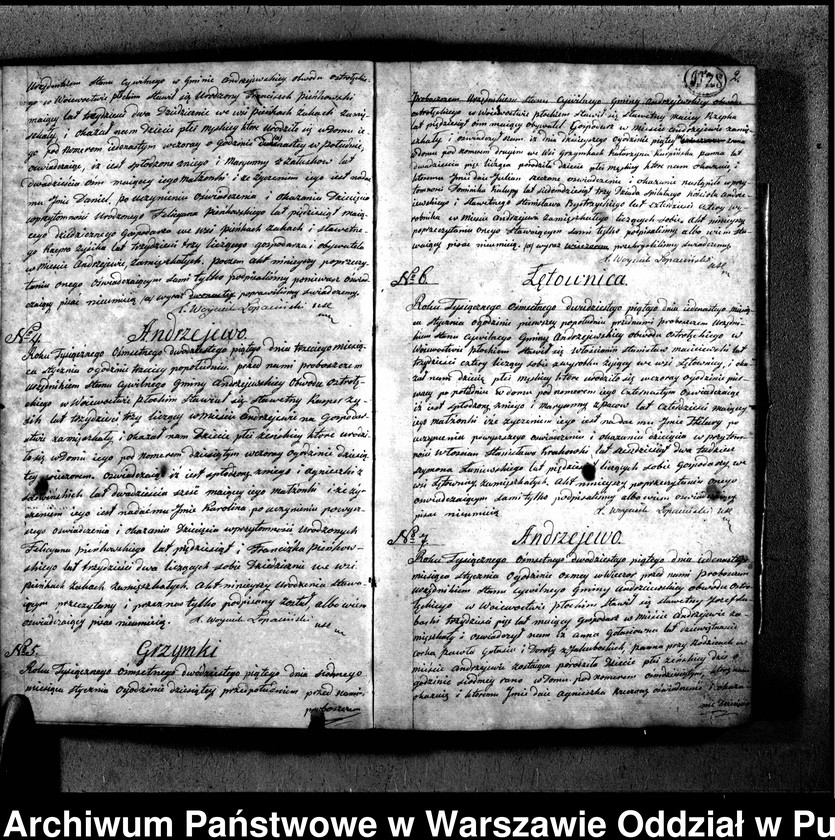 Urzędnikiem Stanu Cywilnego w Gminie Andrzejewskiey obwodu ostrołęckie-
go w Woiewództwie płockim stawił się Urodzony Franciszek Pieńkowski
maiący lat trzydzieści dwa Dziedzic we wsi Pieńkach Żakach zamię-
szkały, i okazał nam Dziecie płci męskiey które urodziło się w domu ie-
go pod Numerem iedenastym wczoray o godzinie w południe,
oświadczaiąc, iż iest spłodzone z niego i Maryanny z Załuskow lat
dwadzieścia ośm maiącey iego małżonki i że życzeniem iego iest nadać
mu Jmie Daniel, po uczynieniu oświadczenia i okazaniu Dziecięcia
w przytomności Urodzonego Felicyana Pieńkowskiego lat pięćdziesiąt maią-
cego dziedzicznego Gospodarza we wsi Pieńkach Żakach i sławetne-
go Kacpra Zysika lat trzydzieści trzy liczącego gospodarza i obywatela
w mieście Andrzejewie zamięszkałych. poczem Akt ninieyszy poprzeczy-
taniu onego oświadczaiącym sami tylko podpisaliśmy ponieważ oświad-
czaiący pisać nieumieią
X. Woyciech Łopaciński usc
No 4. Andrzejewo.
Roku Tysiącznego Ośmsetnego dwudziestego piątego dnia trzeciego miesią-
ca stycznia o godzinie trzeciey popołudniu, przed nami proboszczem
Urzędnikiem Stanu Cywilnego Gminy Andrzejewskiey Obwodu Ostrołę-
ckiego w Woiewództwie Płockim Stawił się Sławetny Kasper Zy-
sik lat trzydzieści trzy liczący w mieście Andrzejewie na Gospodar-
stwie zamięszkały i okazał nam Dziecie płci żeńskiey które urodzi-
ło się w domu iego pod Numerem dziesiątym wczoray o godzinie dziesią-
tey wieczorem. Oświadczaiąc iż iest spłodzone z niego i Agnieszki z
lat dwadzieścia sześć maiącey iego małżonki i że ży-
czeniem iego iest nadać mu Jmie Karolina po uczynieniu powyż-
szego oświadczenia i okazaniu Dziecięcia w przytomności Urodzonych
Felicyana Pieńkowskiego lat pięćdziesiąt i Franciszka Pieńkow-
skiego lat trzydzieści dwa liczących sobie Dziedziców we wsi
Pieńkach Żakach zamięszkałych. Akt ninieyszy Urodzenia Stawa-
iącym przeczytany i przez nas tylko podpisany został albowiem
oświadczaiący pisać nieumieią. X. Woyciech Łopaciński usc
No 5. Grzymki
Roku Tysiącznego Ośmsetnego dwudziestego piątego dnia siódmego
miesiąca stycznia o godzinie dziesiątey przed południem przed nami
proboszczem
2
Proboszczem Urzędnikiem Stanu Cywilnego Gminy Andrzejewskiey obwodu
ostrołęckiego w Woiewództwie płockim Stawił się Sławetny Maciey Rzepka
lat pięćdziesiąt ośm maiący obywatel Gospodarz w Mieście Andrzejewie zamię-
szkały i oświadczył nam iż dnia dzisieyszego o godzinie piątey
w domu pod numerem drugim we wsi Grzymkach Katarzyna Karpińska panna lat
dwadzieścia pięć licząca porodziła Dziecie płci męskiey które nam okazuie i
któremu Jmie daie Julian rzeczone oświadczenie i okazanie nastąpiło w przy-
tomności Dominika Kulupy lat siedemdziesiąt trzy Dziada szpitalnego Kościoła Andrze-
iewskiego i Sławetnego Stanisława Bystrzyckiego lat czterdzieści cztery wy-
robnika w Mieście Andrzejewie zamięszkałego liczących sobie. Akt ninieyszy
poprzeczytaniu onego Stawaiącym sami tylko podpisaliśmy albowiem sta-
waiący pisać nieumieią
X. Woyciech Łopaciński usc
No 6. Łętownica.
Roku Tysiącznego Ośmsetnego dwudziestego piątego dnia iedenastego miesią-
ca stycznia o godzinie pierwszey popołudniu przed nami proboszczem Urzędni-
kiem Stanu Cywilnego Gminy Andrzejewskiey obwodu Ostrołęckiego w
Woiewództwie Płockim Stawił się Włościanin Stanisław lat
trzydzieści cztery liczący sobie z wyrobku żyiący we wsi Łętownicy, i oka-
zał nam dziecie płci męskiey które urodziło się wczoray o godzinie pier-
wszey po południu w domu pod numerem iego czternastym oświadczaiąc
iż iest spłodzone z niego i Maryanny lat czterdzieści maiącey
iego małżonki i że życzeniem iego iest nadać mu Jmie Hilary po
uczynieniu powyższego oświadczenia i okazaniu dziecięcia w przytom-
ności Włościan Stanisława Krakowski lat sześćdziesiąt dwa tudzież
Szymona Zaniewskiego lat pięćdziesiąt liczących sobie Gospodarzy we
wsi Łętownicy zamięszkałych. Akt ninieyszy poprzeczytaniu onego
oświadczaiącym sami tylko podpisaliśmy albowiem oświadczaiący
pisać nieumieią X. Woyciech Łopaciński usc
No 7 Andrzejewo.
Roku Tysiącznego Ośmsetnego dwudziestego piątego dnia iedenastego
miesiąca stycznia o godzinie ósmey wieczor przed nami proboszczem
urzędnikiem Stanu Cywilnego Gminy Andrzejewskiey obwodu Ostro-
łęckiego w Woiewództwie płockim Stawił się Sławetny Jozef
lat trzydzieści pięć maiący Gospodarz w Mieście Andrzejewie za-
mięszkały i oświadczył nam iż Anna Gołasiowna lat dziewiętnaście
corka Pawła Gołasia i Doroty z Jakuboskich, panna przy Rodzicach w
mieście Andrzejewie zostaiąca porodziła Dziecie płci żeńskiey dziś o
godzinie siódmey rano w domu pod numerem ośmdziesiątym, które nam
okazuie i któremu Jmie daie Agnieszka rzeczone oświadczenie i okaza-
nie
Archiwum Państwowe w Warszawie Oddział w Pu